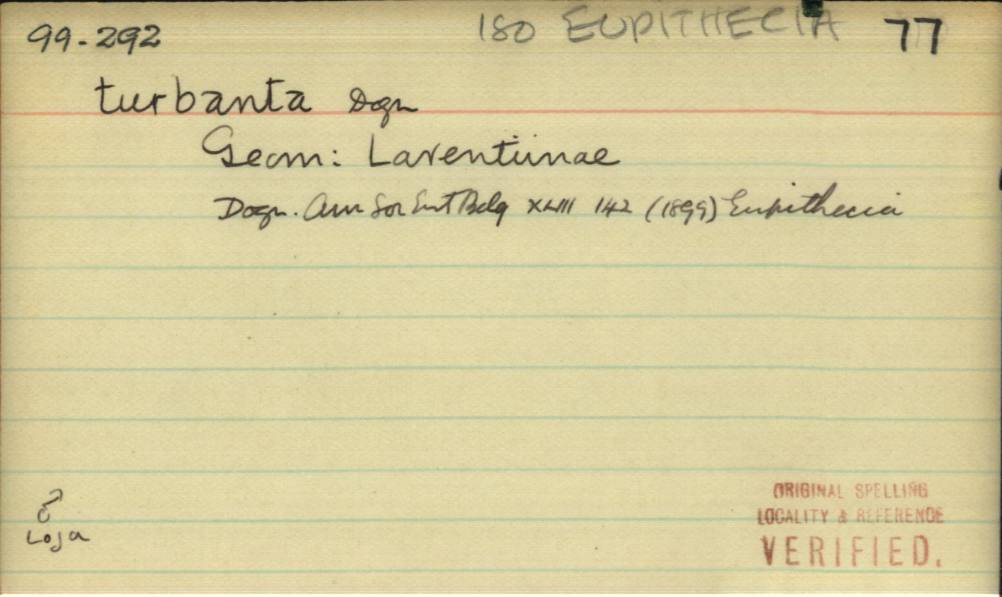 99-292 180 EUPITHECIA 77
turbanta Dgn
Geom: Larentiinae
Dogn. Ann Soc Ent Belg XLIII 142 (1899) Eupithecia
♂
Loja
ORIGINAL SPELLING
LOCALITY & REFERENCE
VERIFIED.